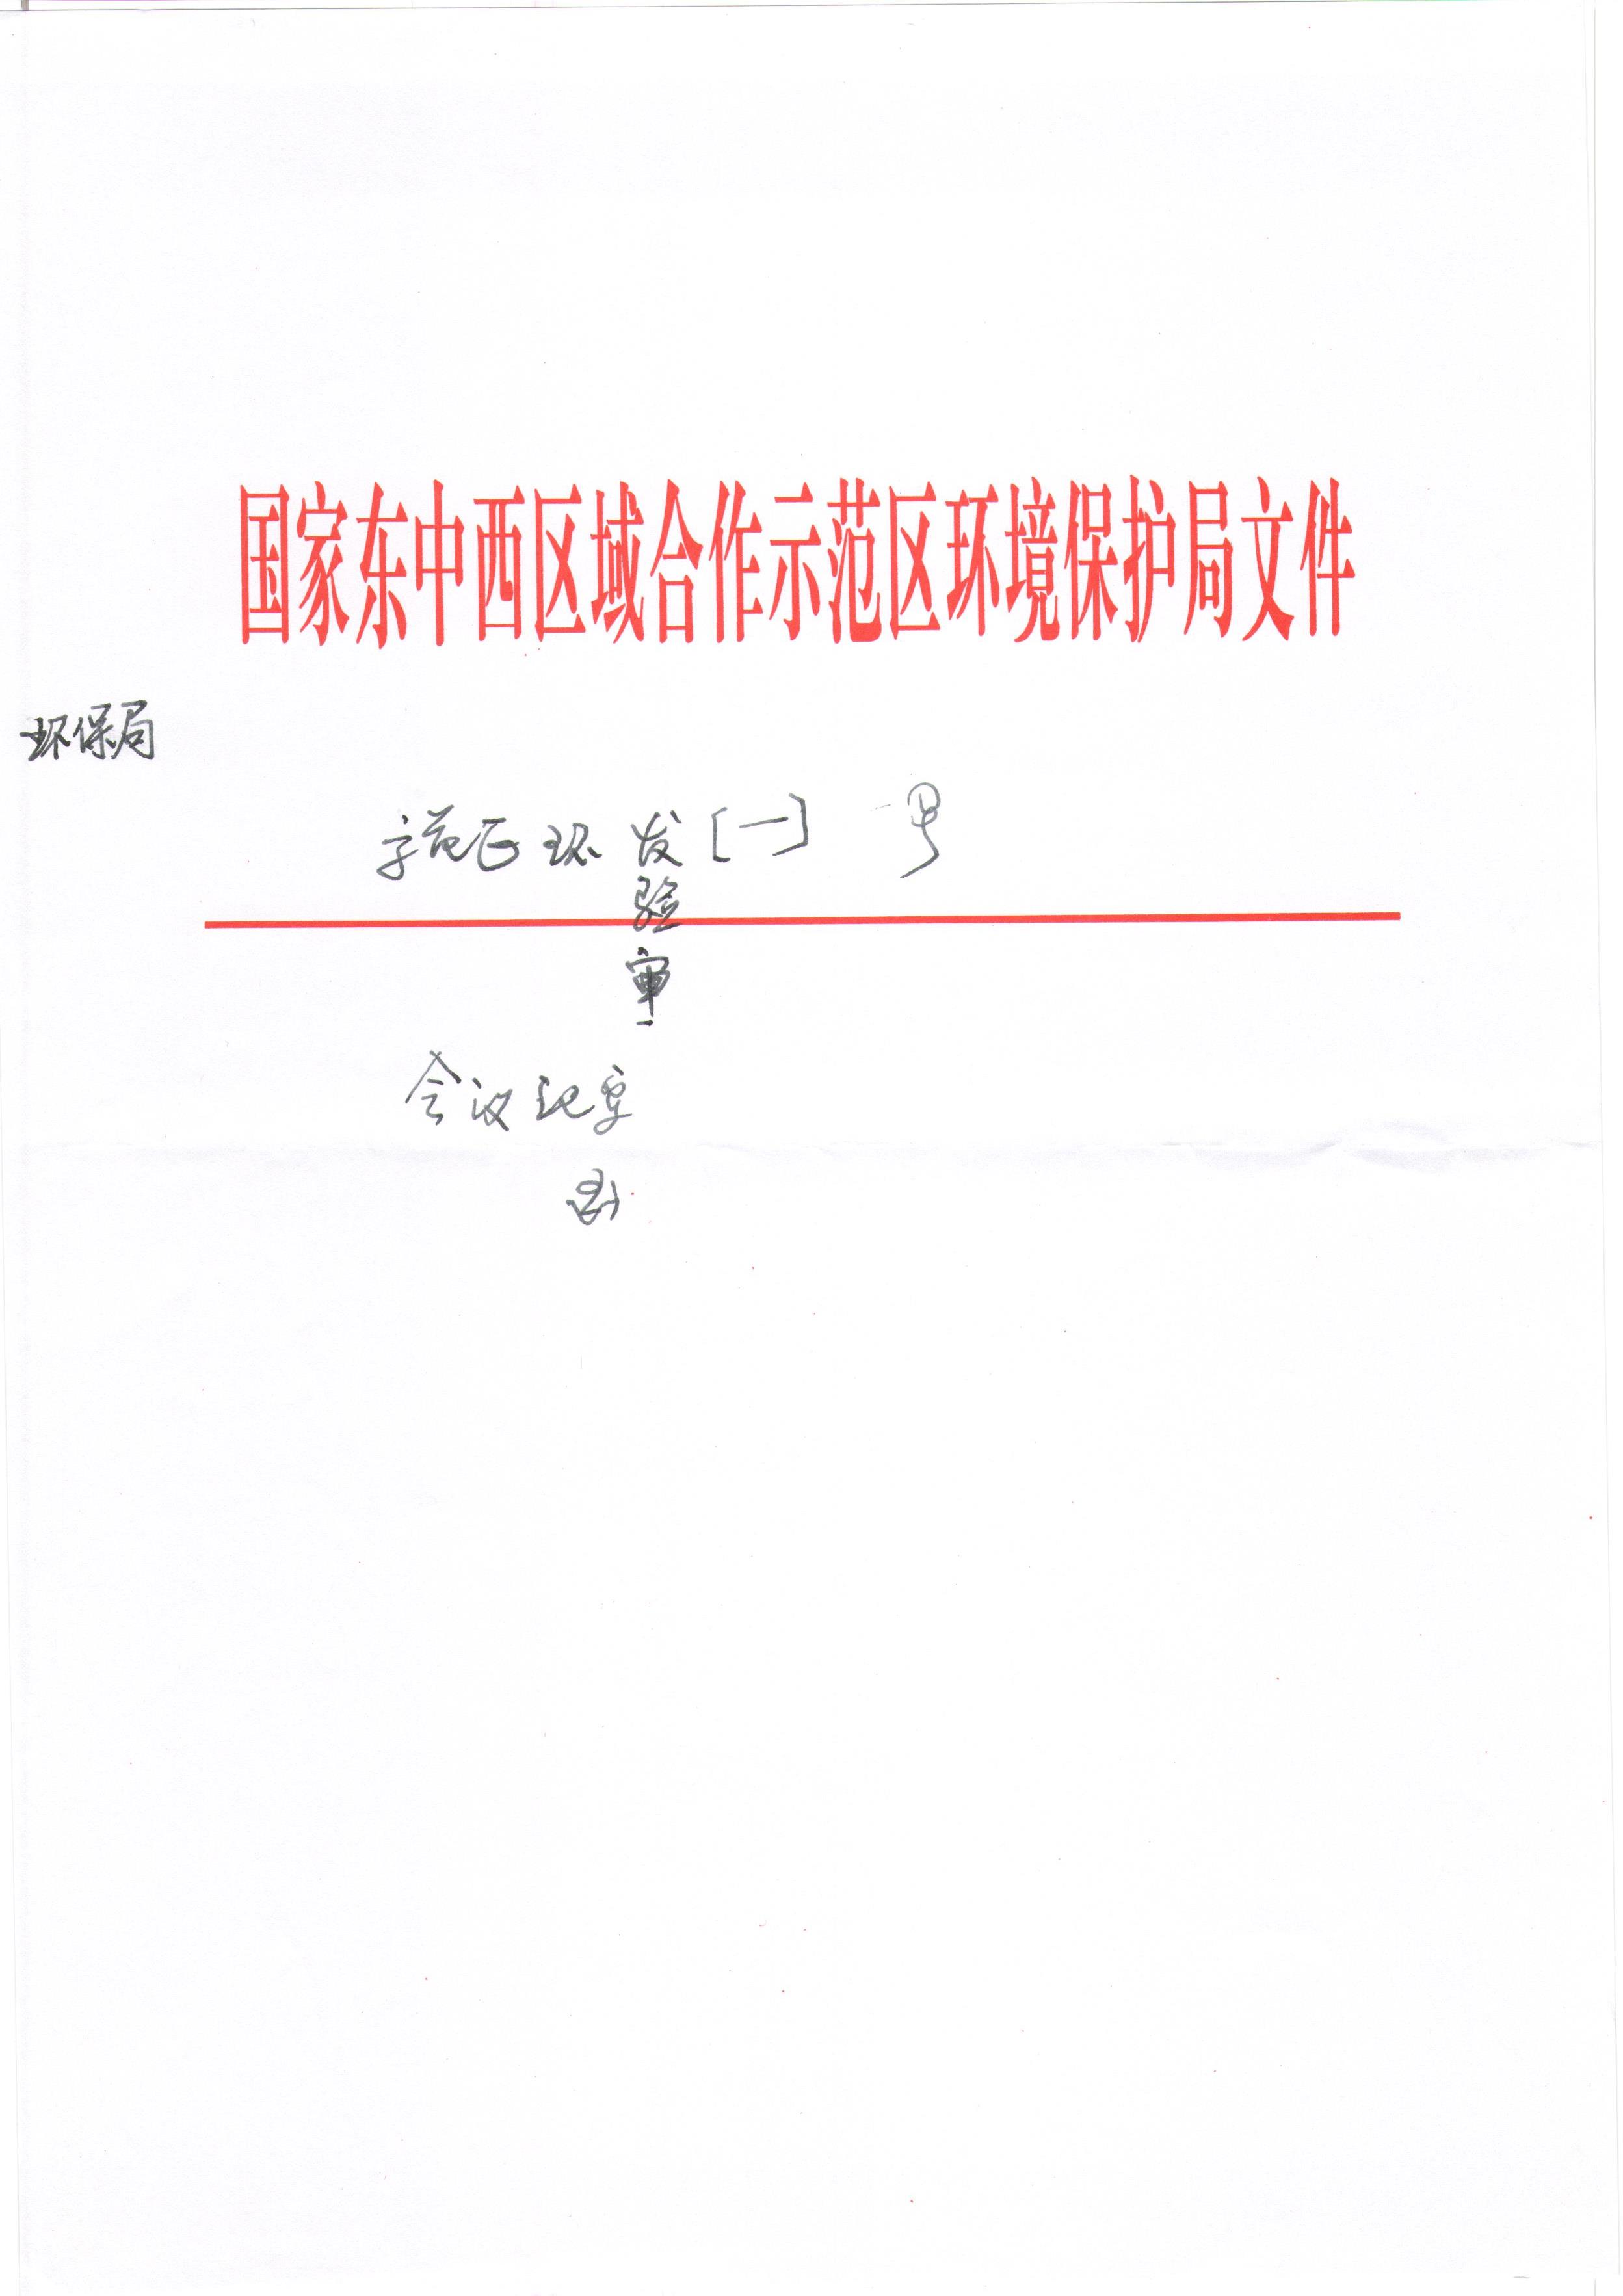 国家东中西区域合作示范区环境保护局文件
环保局
示范区环发[一] 号
验
审
会议纪要
函